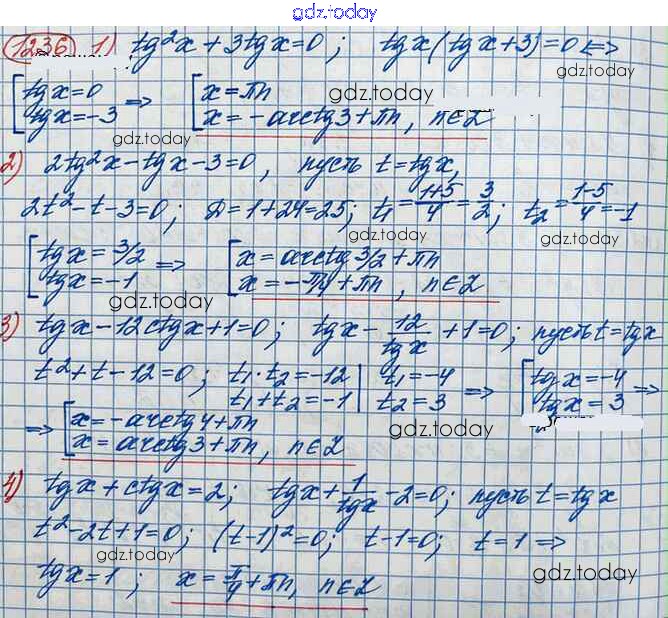 gdz.today
1236 1) tg²x + 3tgx = 0 ; tgx(tgx+3) = 0 <=>
gdz.today
[ tgx = 0 => [ x = πn
tgx = -3 x = -arctg3 + πn, n∈Z
gdz.today
gdz.today
2) 2tg²x - tgx - 3 = 0, пусть t = tgx,
2t² - t - 3 = 0; D = 1 + 24 = 25; t₁ = (1+5)/4 = 3/2 ; t₂ = (1-5)/4 = -1
gdz.today
gdz.today
[ tgx = 3/2 => [ x = arctg 3/2 + πn
tgx = -1 x = -π/4 + πn, n∈Z
gdz.today
3) tgx - 12ctgx + 1 = 0; tgx - 12/tgx + 1 = 0; пусть t = tgx
t² + t - 12 = 0; t₁·t₂ = -12 | t₁ = -4 => [ tgx = -4 =>
t₁ + t₂ = -1 | t₂ = 3 tgx = 3
=> [ x = -arctg4 + πn
x = arctg3 + πn, n∈Z
gdz.today
4) tgx + ctgx = 2; tgx + 1/tgx - 2 = 0; пусть t = tgx
t² - 2t + 1 = 0; (t-1)² = 0; t - 1 = 0; t = 1 =>
gdz.today
tgx = 1 ; x = π/4 + πn, n∈Z
gdz.today